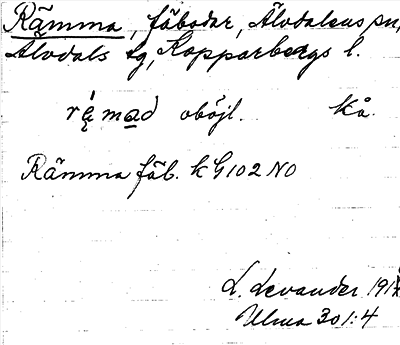 Rämma, fäbodar, Älvdalens sn,
Älvdals tg, Kopparbergs l.
oböjl. kå.
Rämma fäb. k G102 NO
L. Levander
Ulma 301:4